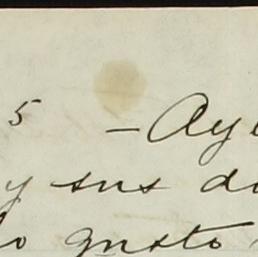 5 — Ay
y sus
gusto